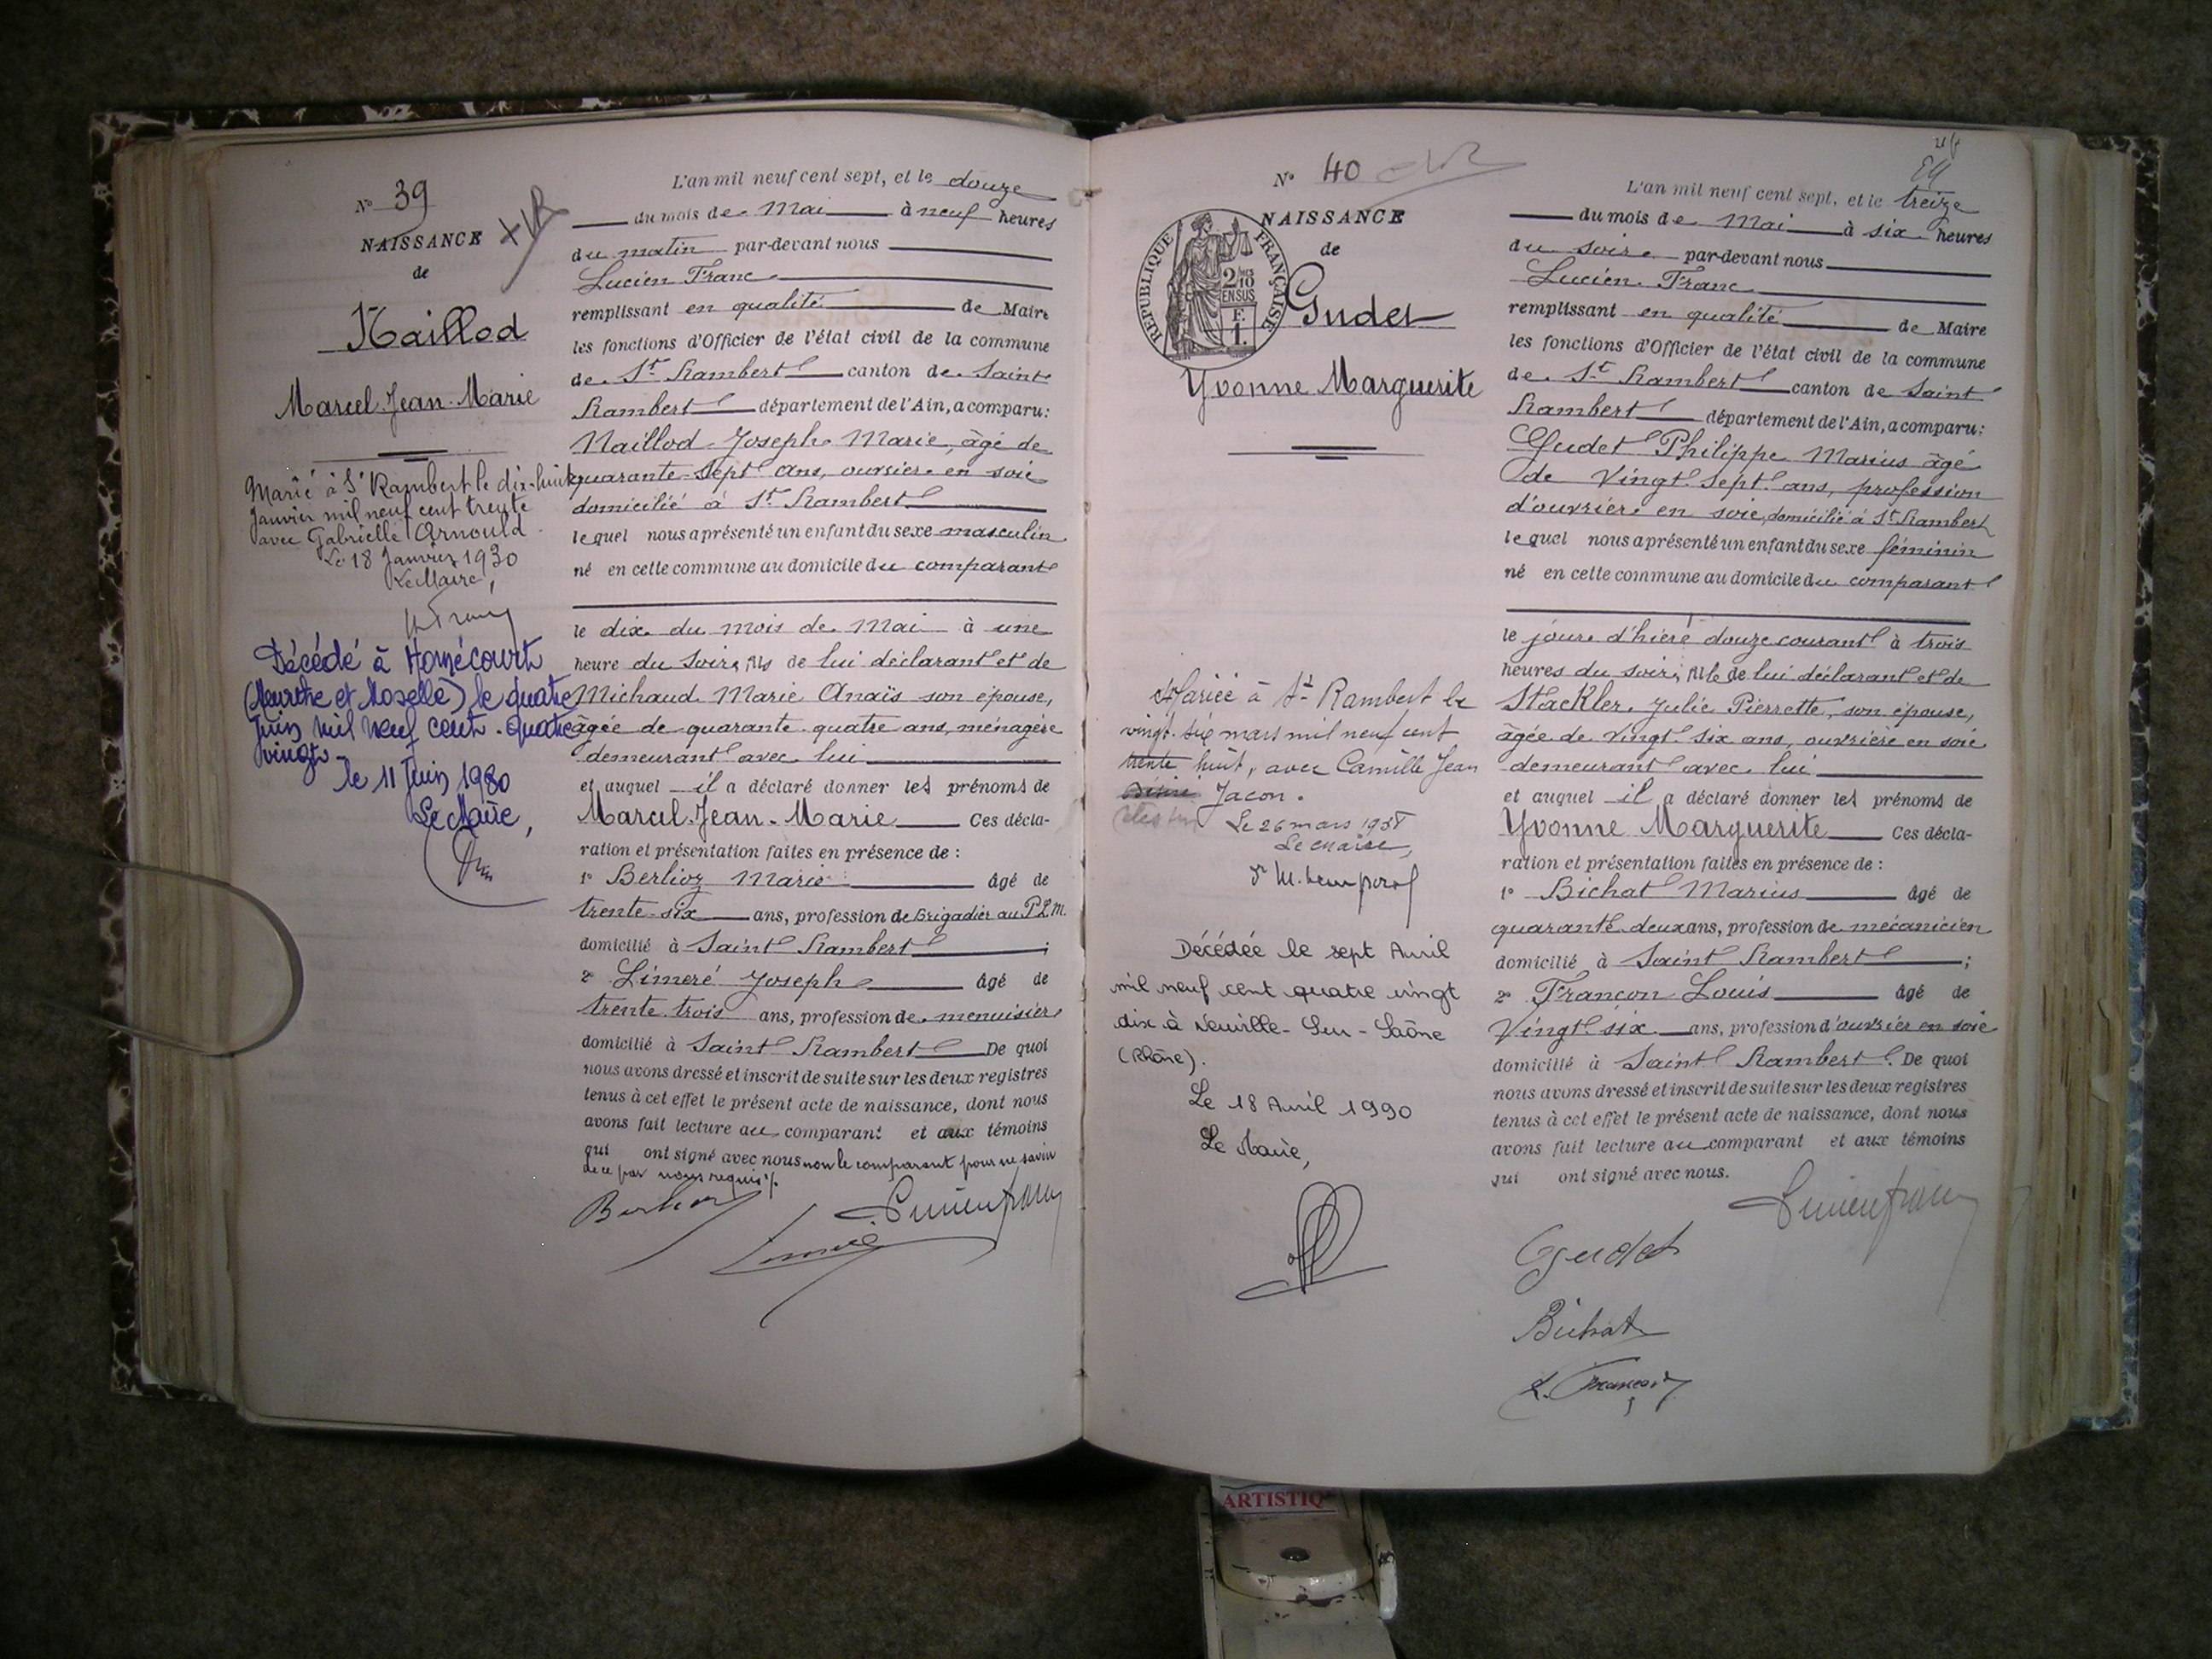 N° 39
NAISSANCE
de
Naillod
Marcel Jean Marie
Marié à St Rambert le dix-huit
Janvier mil neuf cent trente
avec Gabrielle Arnould
Le 18 Janvier 1930
Le Maire,
Décédé à Homécourt
(Meurthe et Moselle) le quatre
Juin mil neuf cent quatre
vingt
le 11 Juin 1980
Le Maire,
L'an mil neuf cent sept, et le douze
du mois de Mai à neuf heures
du matin par-devant nous
Lucien Franc
remplissant en qualité de Maire
les fonctions d'Officier de l'état civil de la commune
de St Rambert canton de Saint
Rambert département de l'Ain, a comparu:
Naillod Joseph Marie, âgé de
quarante-sept ans, ouvrier en soie
domicilié à St Rambert
lequel nous a présenté un enfant du sexe masculin
né en cette commune au domicile du comparant
le dix du mois de Mai à une
heure du soir, fils de lui déclarant et de
Michaud Marie Anaïs son épouse,
âgée de quarante quatre ans, ménagère
demeurant avec lui
et auquel il a déclaré donner les prénoms de
Marcel Jean-Marie Ces décla-
ration et présentation faites en présence de :
1° Berlioz Marie âgé de
trente-six ans, profession de Brigadier au P.L.M.
domicilié à Saint Rambert ;
2° Limeré Joseph âgé de
trente trois ans, profession de menuisier
domicilié à Saint Rambert De quoi
nous avons dressé et inscrit de suite sur les deux registres
tenus à cet effet le présent acte de naissance, dont nous
avons fait lecture au comparant et aux témoins
qui ont signé avec nous non le comparant pour ne savoir
de ce par nous requis
N° 40
NAISSANCE
de
RÉPUBLIQUE FRANÇAISE
2/10 EN SUS
F.
1.
Gudet
Yvonne Marguerite
Mariée à St Rambert le
vingt-six mars mil neuf cent
trente huit, avec Camille Jean
Jacon.
Le 26 mars 1938
Le Maire,
Décédée le sept Avril
mil neuf cent quatre vingt
dix à Neuville-Sur-Saône
(Rhône).
Le 18 Avril 1990
Le Maire,
24
L'an mil neuf cent sept, et le treize
du mois de Mai à six heures
du soir par-devant nous
Lucien Franc
remplissant en qualité de Maire
les fonctions d'Officier de l'état civil de la commune
de St Rambert canton de Saint
Rambert département de l'Ain, a comparu:
Gudet Philippe Marius âgé
de Vingt sept ans, profession
d'ouvrier en soie, domicilié à St Rambert
lequel nous a présenté un enfant du sexe féminin
né en cette commune au domicile du comparant
le jour d'hier douze courant à trois
heures du soir, fille de lui déclarant et de
Stackler Julie Pierrette, son épouse,
âgée de Vingt six ans, ouvrière en soie
demeurant avec lui
et auquel il a déclaré donner les prénoms de
Yvonne Marguerite Ces décla-
ration et présentation faites en présence de :
1° Bichat Marius âgé de
quarante deux ans, profession de mécanicien
domicilié à Saint Rambert ;
2° Françon Louis âgé de
Vingt six ans, profession d'ouvrier en soie
domicilié à Saint Rambert. De quoi
nous avons dressé et inscrit de suite sur les deux registres
tenus à cet effet le présent acte de naissance, dont nous
avons fait lecture au comparant et aux témoins
qui ont signé avec nous.
Gudet
Bichat
L. Françon
ARTISTIQ